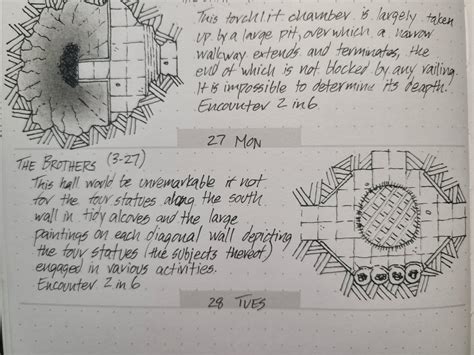 This torchlit chamber is largely taken
up by a large pit, over which a narrow
walkway extends and terminates, the
end of which is not blocked by any railing.
It is impossible to determine its deapth.
Encounter 2 in 6
27 MON
THE BROTHERS (3-27)
This hall would be unremarkable if not
for the four statues along the south
wall in tidy alcoves and the large
paintings on each diagonal wall depicting
the four statues (the subjects thereof)
engaged in various activities.
Encounter 2 in 6
28 TUES